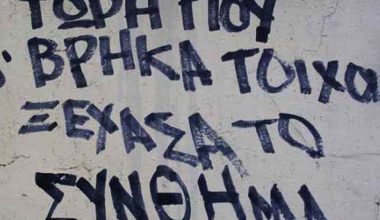 ΤΩΡΑ ΠΟΥ
ΒΡΗΚΑ ΤΟΙΧΟ
ΞΕΧΑΣΑ ΤΟ
ΣΥΝΘΗΜΑ